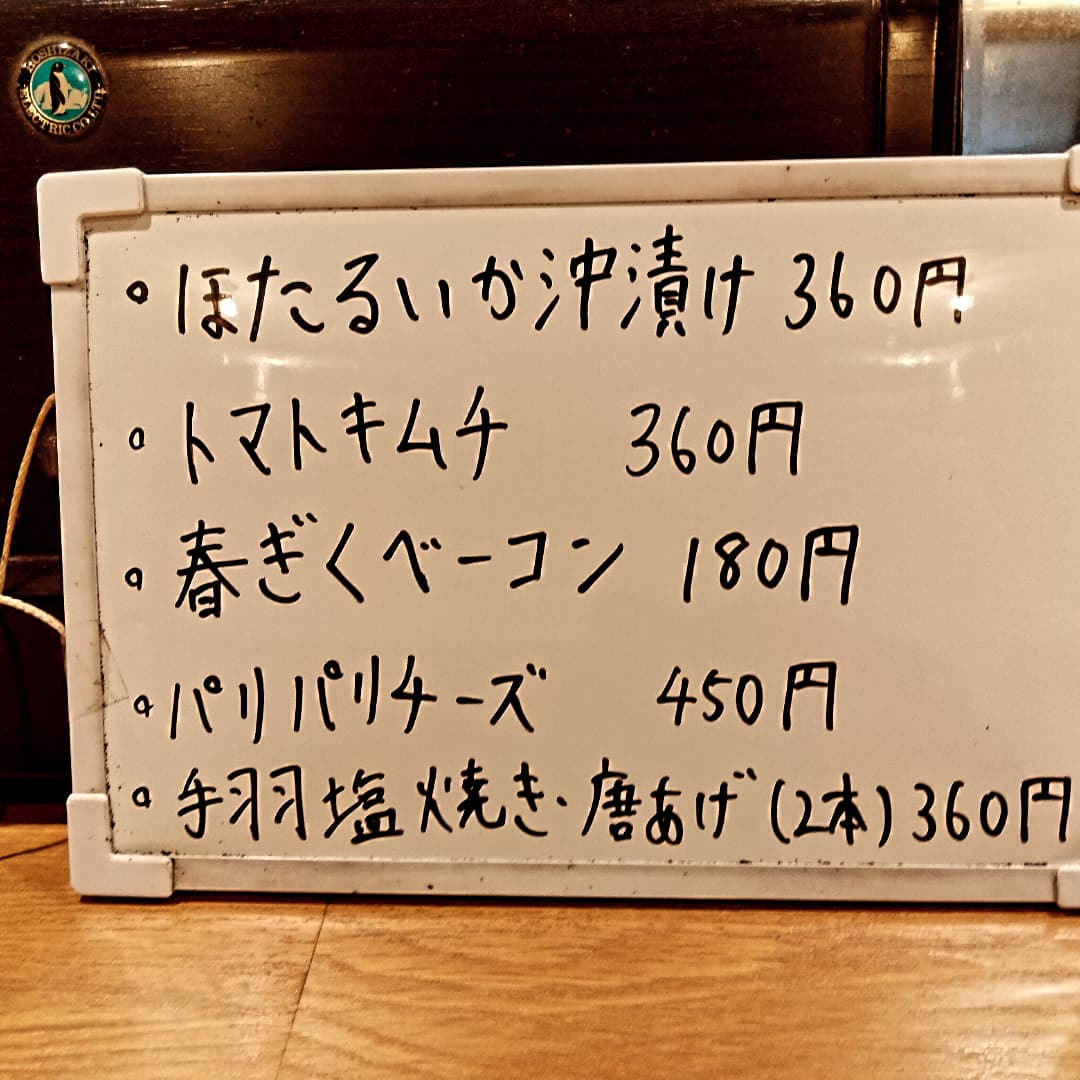 HOSHIZAKI
ELECTRIC CO.LTD
。ほたるいか沖漬け 360円
。トマトキムチ 360円
。春ぎくベーコン 180円
。パリパリチーズ 450円
。手羽塩焼き・唐あげ(2本)360円